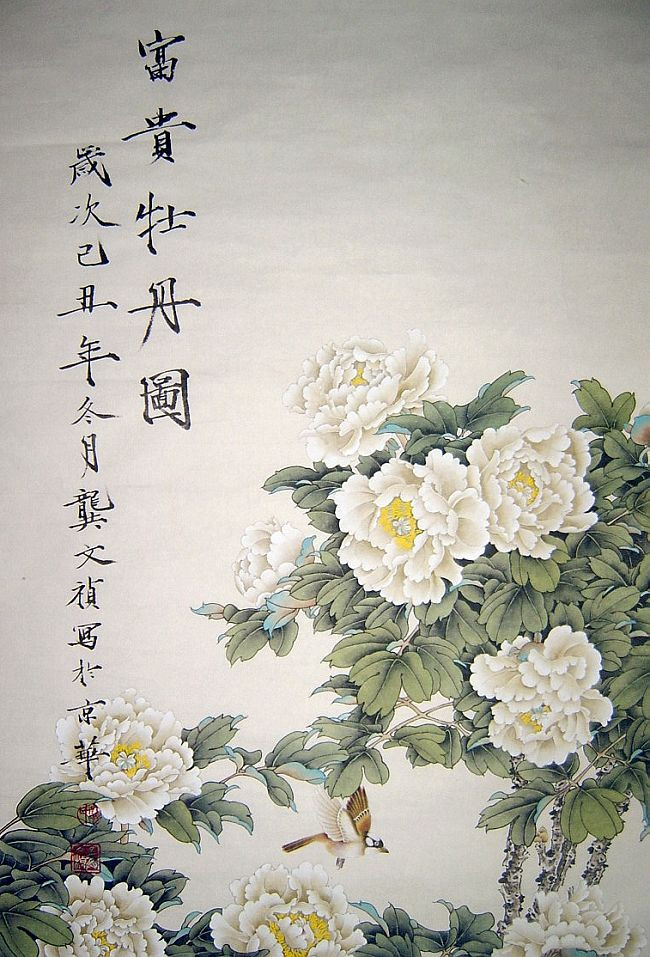 富貴牡丹圖
歲次己丑年冬月龔文禎寫於京華